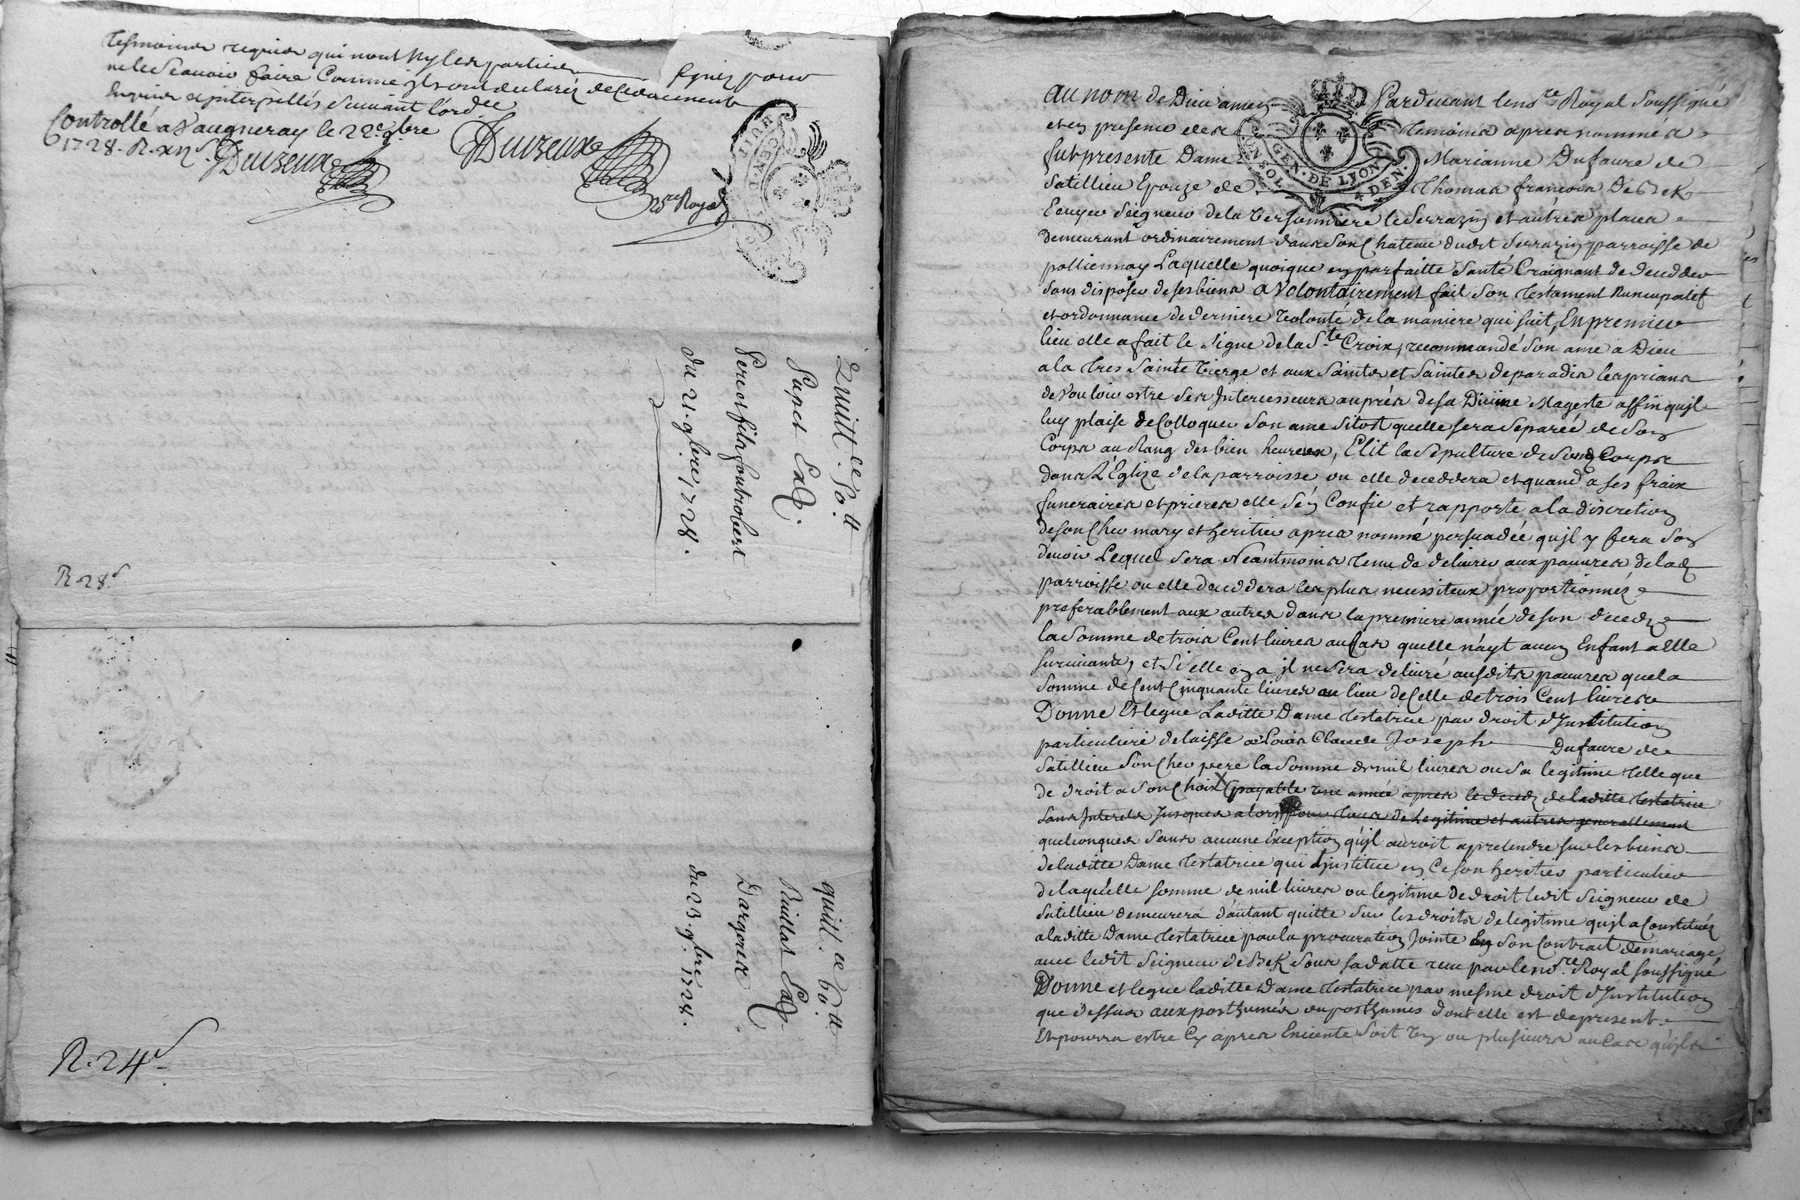 tesmoins requis qui nont ny les parties
ne le scavoir faire Comme ils ont declaré de ce duement
enquis et interpellés suivant l'ord.ce
Controllé a Vaugneray le 22.e 9bre
1728. R. xij s.
Duizeux
Duizeux
n.re Royal
Quitt.ce 50.tt
Pupet Ead.
Pere et fils fontrobert
du 21. 9bre 1728.
R. 28 s
quitt.ce 60.tt
Ead.
Dargoire
du 23. 9bre 1728.
R. 24 s
au nom de Dieu amen Pardevant le no.re Royal soussigné
et en presence des temoins apres nommés
fut presente Dame Marianne Dufaure de
Satillieu Epouze de Thomas francois DeBek
Ecuyer Seigneur de la tersonniere le Serrazin et autres places
demeurant ordinairement dans son Chateau dudit Serrazin parroisse de
pollionnay Laquelle quoique en parfaitte Santé Craignant de deceder
sans disposer de ses biens a Volontairement fait son testament nuncupatif
et ordonnance de derniere volonté de la maniere qui suit, En premier
lieu elle a fait le signe de la S.te Croix, recommandé son ame a Dieu
a la tres Sainte Vierge et aux Saints et Saintes de paradis les priant
de Vouloir estre ses Intercesseurs auprés de sa Divine Mageste affin quil
luy plaise de Colloquer son ame sitost quelle sera separée de son
Corps au Rang des bien heureux, Elit la sepulture de sond Corps
dans L'Eglize de la parroisse ou elle decedera et quand a ses fraix
funeraires et prieres elle s'en Confie et rapporte a la discretion
de son Cher mary et heritier apres nommé persuadée quil y fera son
devoir Lequel sera Neantmoins tenu de delivrer aux pauvres de lad
parroisse ou elle decedera les plus necessiteux proportionnés
preferablement aux autres dans la premiere année de son decedz
la somme de trois Cent livres au Cas quelle n'ayt aucun Enfant a Elle
survivants, et si elle en a il ne sera delivré ausdits pauvres que la
somme de Cent Cinquante livres au lieu de Celle de trois Cent livres
Donne Et legue Laditte Dame testatrice par droit d'Institution
particuliere delaisse a Louis Claude Joseph Dufaure de
Satillieu son Cher pere la somme de mil livres ou sa legitime telle que
de droit a son Choix payable une année apres le decedz de laditte testatrice
sans Interets Jusques alors pour tous de legitime et autres generallement
quelconques sans aucune Exception quil auroit a pretendre sur les biens
de laditte Dame testatrice qui l'institue en Ce son heritier particulier
de laquelle somme de mil livres ou legitime de droit ledit Seigneur de
Satillieu demeurera d'autant quitte sur les droits de legitime quil a Constitués
a laditte Dame testatrice par la procuration Jointe en son Contrait de mariage
avec ledit Seigneur de Bek sous sa datte receu par le no.re Royal soussigné
Donne et legue laditte Dame testatrice par mesme droit d'Institution
que dessus aux posthumes ou posthumes dont elle est de present
Et pourra estre Cy apres Enceinte soit un ou plusieurs au Cas quils